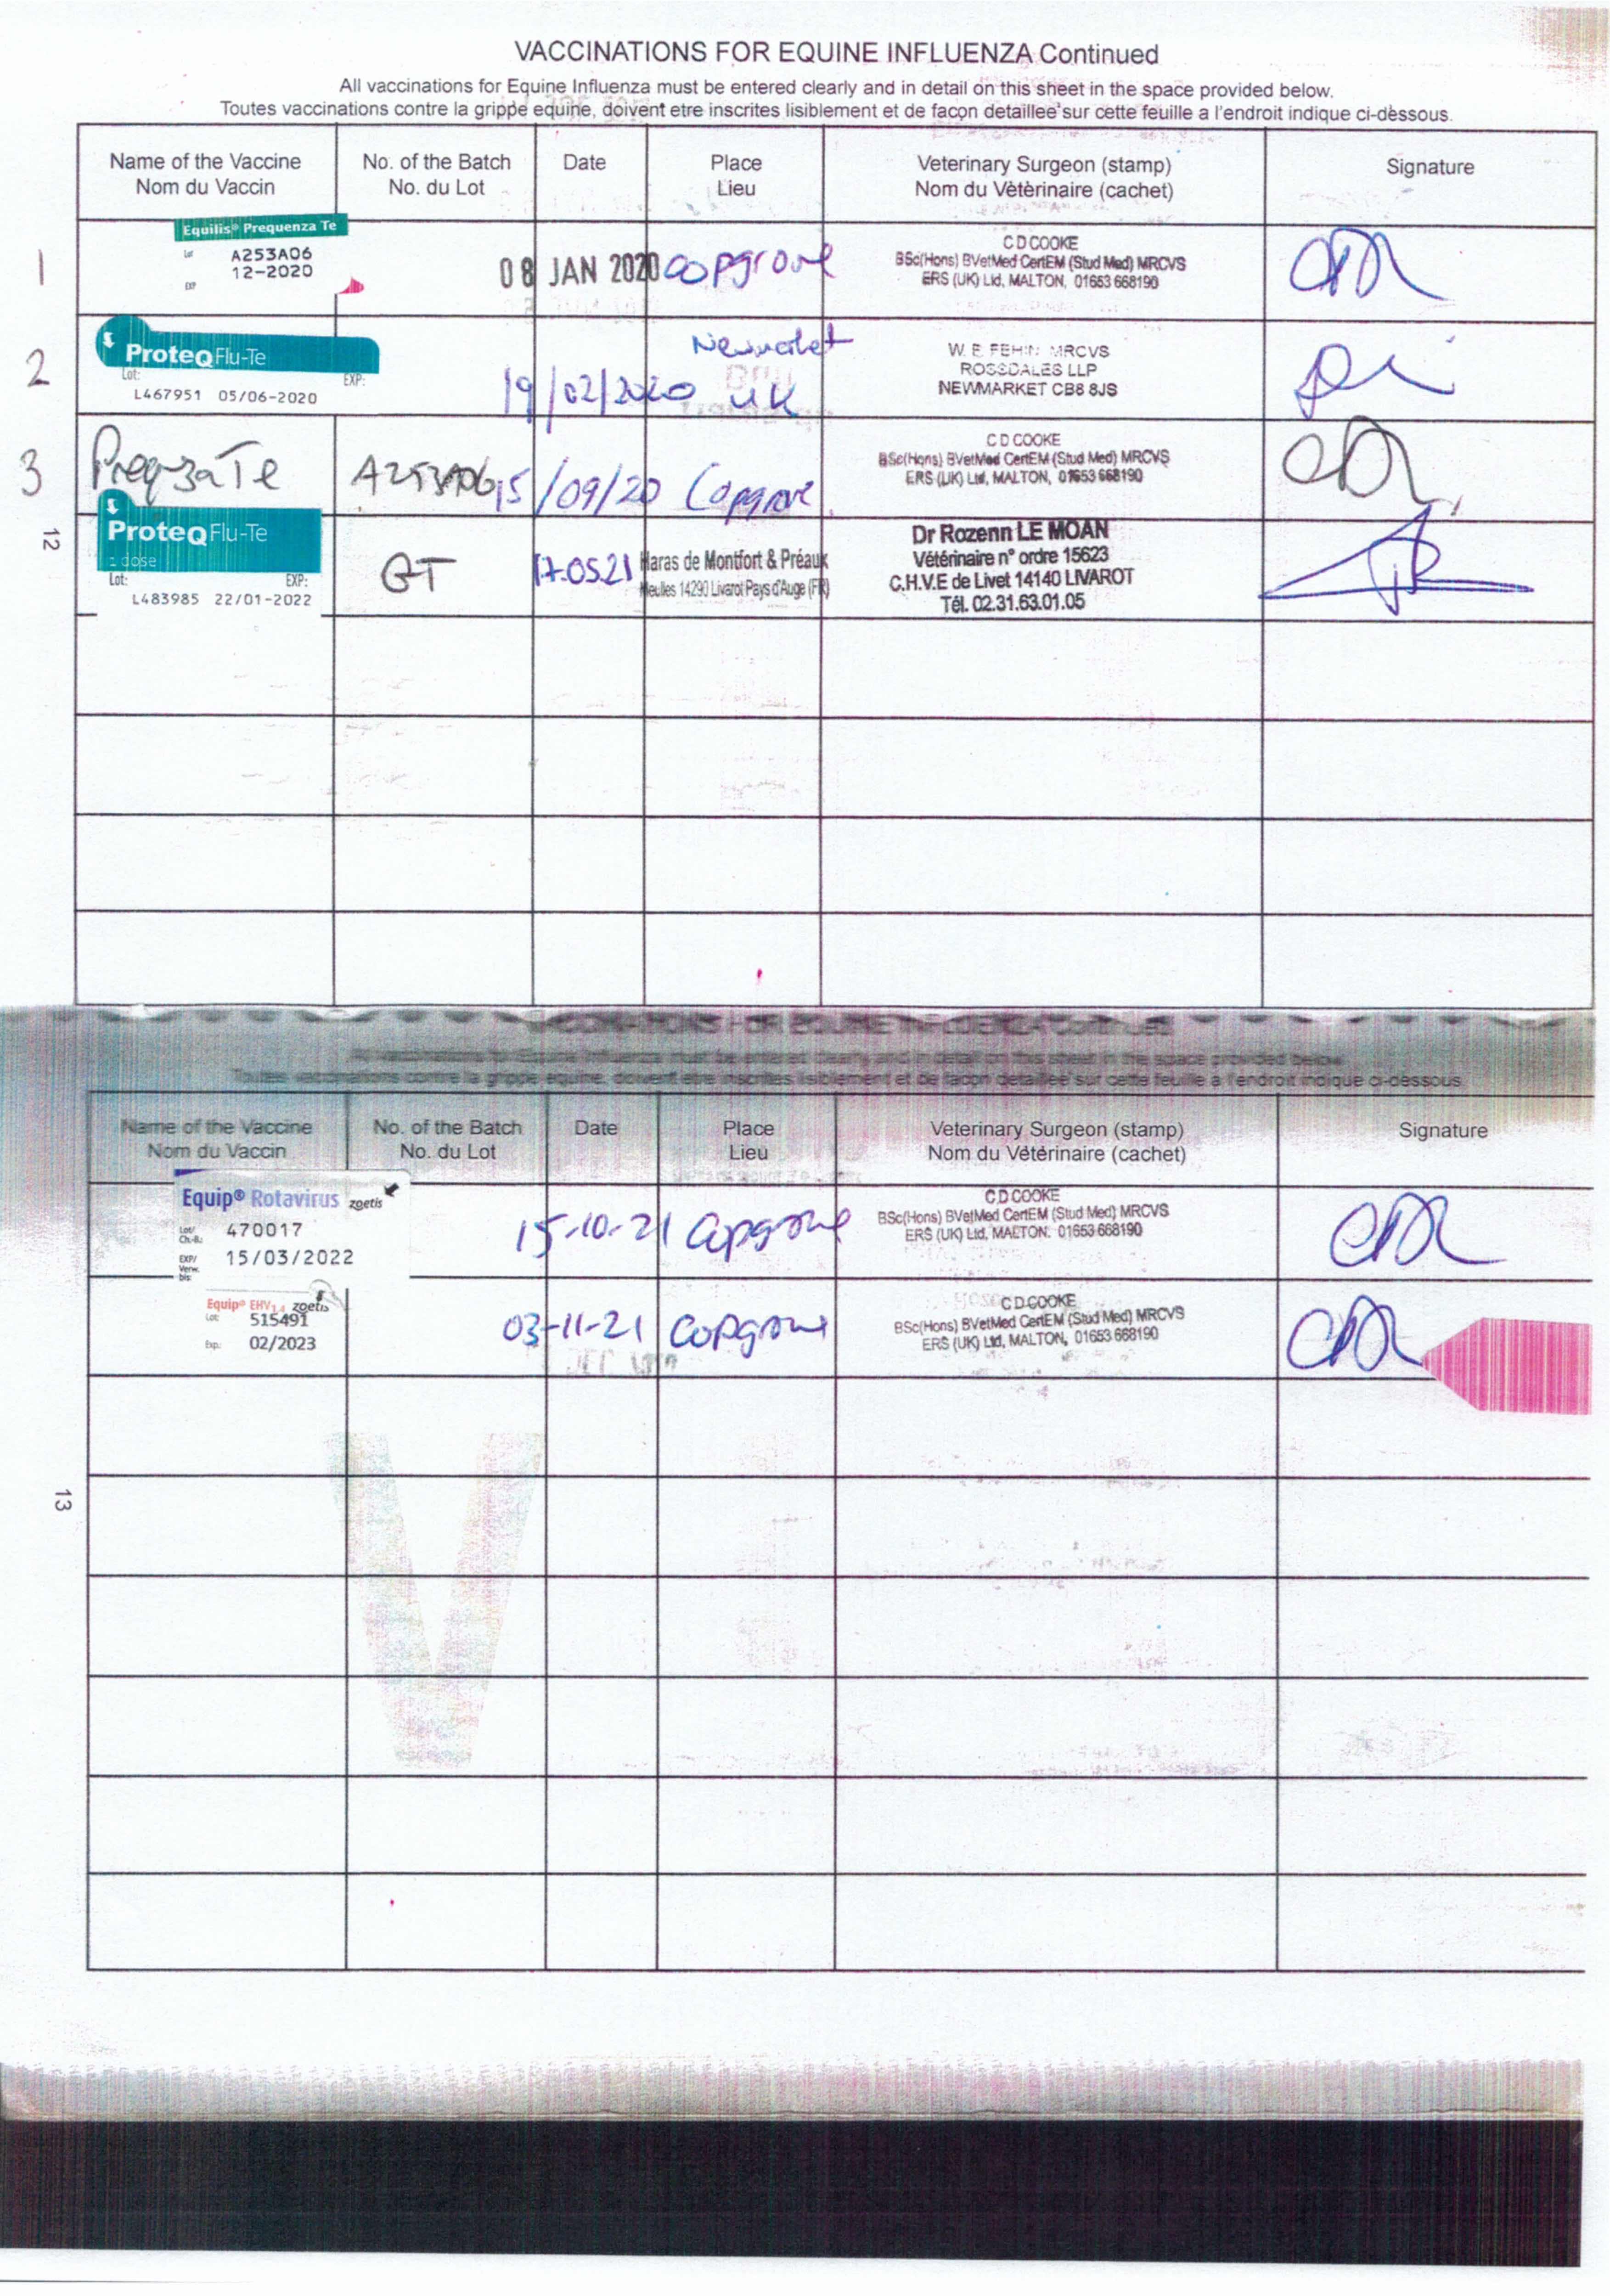 VACCINATIONS FOR EQUINE INFLUENZA Continued
All vaccinations for Equine Influenza must be entered clearly and in detail on this sheet in the space provided below.
Toutes vaccinations contre la grippe equine, doivent etre inscrites lisiblement et de façon detaillee sur cette feuille a l'endroit indique ci-dèssous.
Name of the Vaccine No. of the Batch Date Place Veterinary Surgeon (stamp) Signature
Nom du Vaccin No. du Lot Lieu Nom du Vètèrinaire (cachet)
1
Equilis® Prequenza Te
Lot A253A06
12-2020
EXP
08 JAN 2020 Copgrove
C D COOKE
BSc(Hons) BVetMed CertEM (Stud Med) MRCVS
ERS (UK) Ltd, MALTON, 01653 668190
2
ProteqFlu-Te
Lot: EXP:
L467951 05/06-2020
19/02/2020
Newmarket
UK
W. E. FEHIN MRCVS
ROSSDALES LLP
NEWMARKET CB8 8JS
3
PreqzaTe A253A06 15/09/20 Copgrove
C D COOKE
BSc(Hons) BVetMed CertEM (Stud Med) MRCVS
ERS (UK) Ltd, MALTON, 01653 668190
12
ProteqFlu-Te
1 dose
Lot: EXP:
L483985 22/01-2022
GT 17.05.21
Haras de Montfort & Préaux
Meulles 14290 Livarot Pays d'Auge (FR)
Dr Rozenn LE MOAN
Vétérinaire n° ordre 15623
C.H.V.E de Livet 14140 LIVAROT
Tél. 02.31.63.01.05
VACCINATIONS FOR EQUINE INFLUENZA Continued
All vaccinations for Equine Influenza must be entered clearly and in detail on this sheet in the space provided below.
Toutes vaccinations contre la grippe equine, doivent etre inscrites lisiblement et de façon detaillee sur cette feuille a l'endroit indique ci-dessous.
Name of the Vaccine No. of the Batch Date Place Veterinary Surgeon (stamp) Signature
Nom du Vaccin No. du Lot Lieu Nom du Vétérinaire (cachet)
Equip® Rotavirus zoetis
Lot/ Ch.-B.: 470017
EXP/ Verw. bis: 15/03/2022
15-10-21 Copgrove
C D COOKE
BSc(Hons) BVetMed CertEM (Stud Med) MRCVS
ERS (UK) Ltd, MALTON. 01653 668190
Equip® EHV1,4 zoetis
Lot: 515491
Exp.: 02/2023
03-11-21 Copgrove
C D COOKE
BSc(Hons) BVetMed CertEM (Stud Med) MRCVS
ERS (UK) Ltd, MALTON, 01653 668190
13